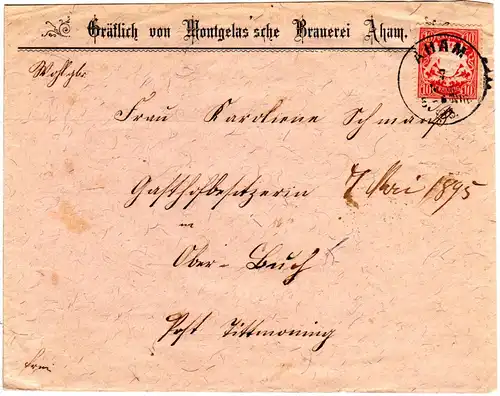 Gräflich von Montgelas'sche Brauerei Aham.
10 10
AHAM
Wohlgb.
Frau Karoliene Schmauß
Gasthofbesitzerin 7 Mai 1895
in
Ober-Buch
Post Tittmoning
frei